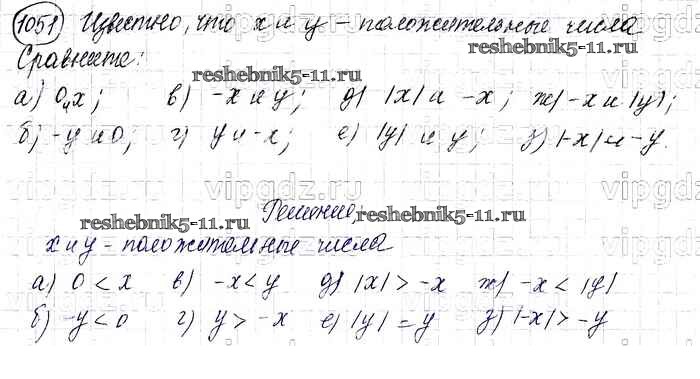 1051 Известно, что x и y – положительные числа
Сравните:
reshebnik5-11.ru
а) 0 и x; в) -x и y; д) |x| и -x; ж) -x и |y|;
б) -y и 0; г) y и -x; е) |y| и y; з) |-x| и -y.
vipgdz.ru vipgdz.ru vipgdz.ru
Решение,
reshebnik5-11.ru reshebnik5-11.ru
x и y – положительные числа
а) 0 < x в) -x < y д) |x| > -x ж) -x < |y|
б) -y < 0 г) y > -x е) |y| = y з) |-x| > -y